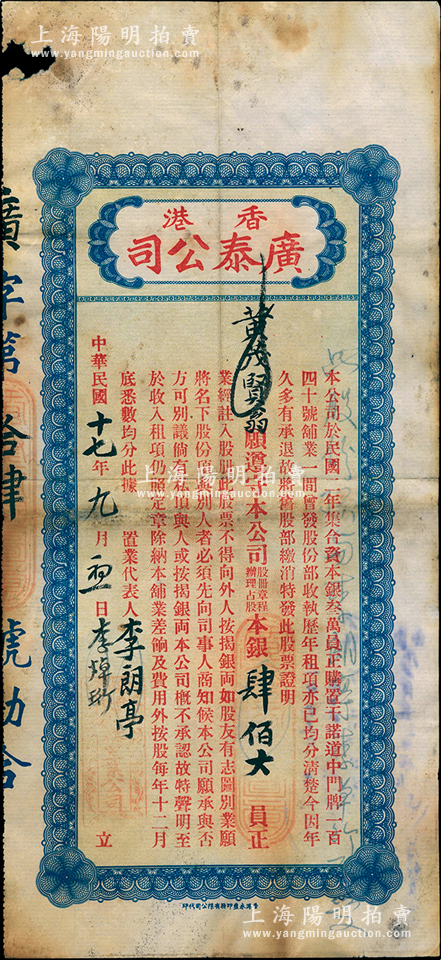 上海陽明拍賣
www.yangmingauction.com
香港
廣泰公司
本公司於民國二年集合資本銀叁萬員正購置干諾道中門牌一百
四十號舖業一間曾發股份部收執歷年租項亦已均分清楚今因年
久多有承退故將舊股部繳消特發此股票證明
黃茂賢翁願遵守本公司股冊章程辦理占股本銀肆佰大員正
業經註入股冊此股票不得向外人按揭銀両如股友有志圖別業願
將名下股份讓與別人者必須先向司事人商知候本公司願承與否
方可別議倘私自頂與人或按揭銀両本公司概不承認故特聲明至
於收入租項仍照定章除納本舖業差餉及費用外按股每年十二月
底悉數均分此據
置業代表人李朗亭
李煒珩
中華民國十七年九月 日 立
廣字第拾肆號
上海陽明拍賣
www.yangmingauction.com